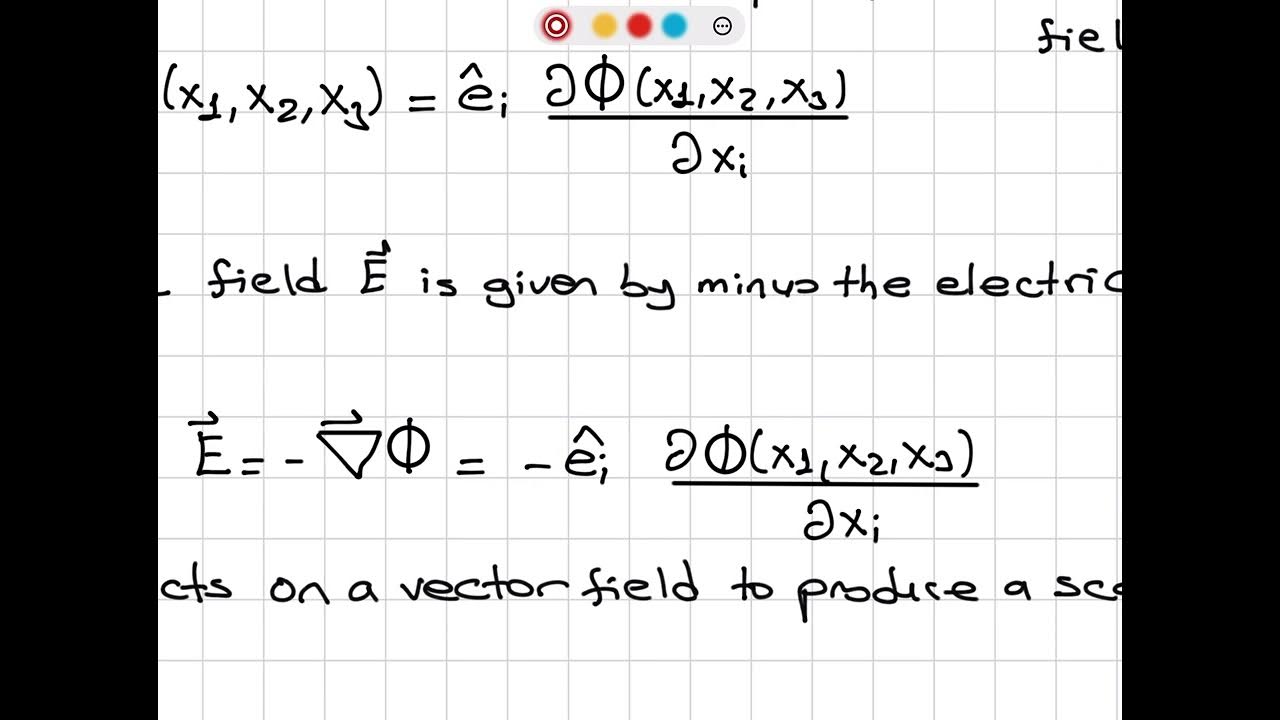 fiel
(x₁, x₂, x₃) = êᵢ ∂Φ(x₁, x₂, x₃)
∂xᵢ
field E⃗ is given by minus the electric
E⃗ = - ∇⃗Φ = - êᵢ ∂Φ(x₁, x₂, x₃)
∂xᵢ
cts on a vector field to produce a sca